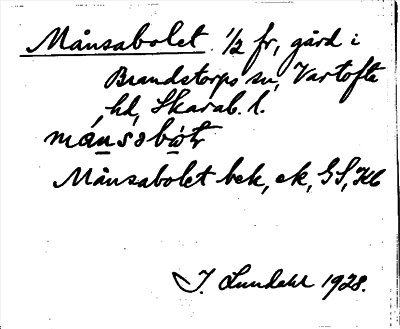 Månsabolet ½ fr, gård i
Brandstorps sn, Vartofta
hd, Skarab. l.
Månsabolet bek, ek, GS, Hb
J. Lundahl 1928.